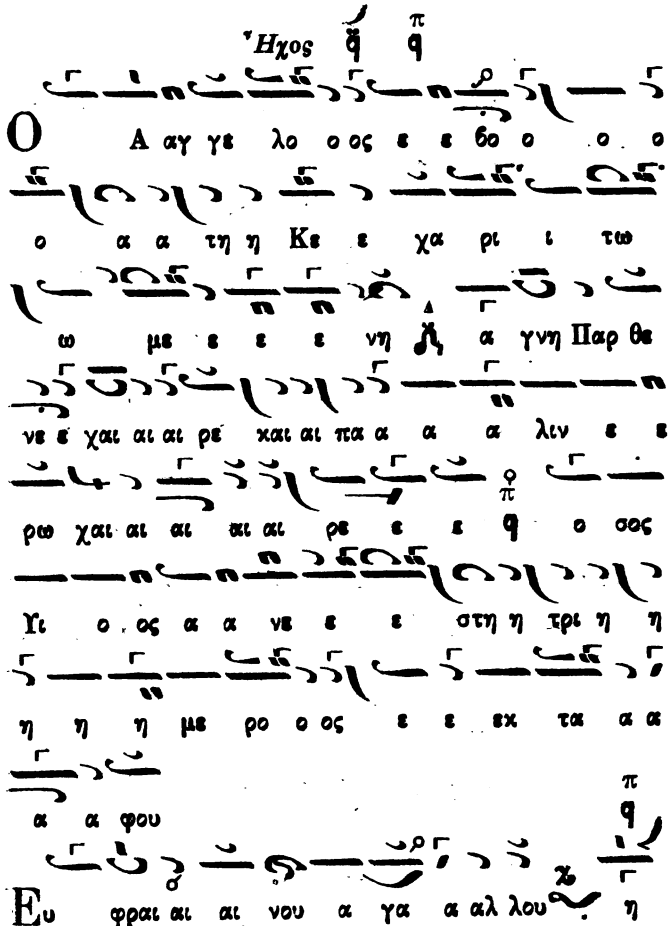 Ἦχος π̈ q π q
Ο Α αγ γε λο ο ος ε ε βο ο ο ο
ο α α τη η Κε ε χα ρι ι τω
ω με ε ε ε νη Δ α γνη Παρ θε
νε ε χαι αι αι ρε και αι πα α α α λιν ε ε
ρω χαι αι αι αι αι ρε ε ε π q ο σος
Υι ο ος α α νε ε ε στη η τρι η η
η η η με ρο ο ος ε ε εκ τα α α
α α φου
π q
Ευ φραι αι αι νου α γα α αλ λου η